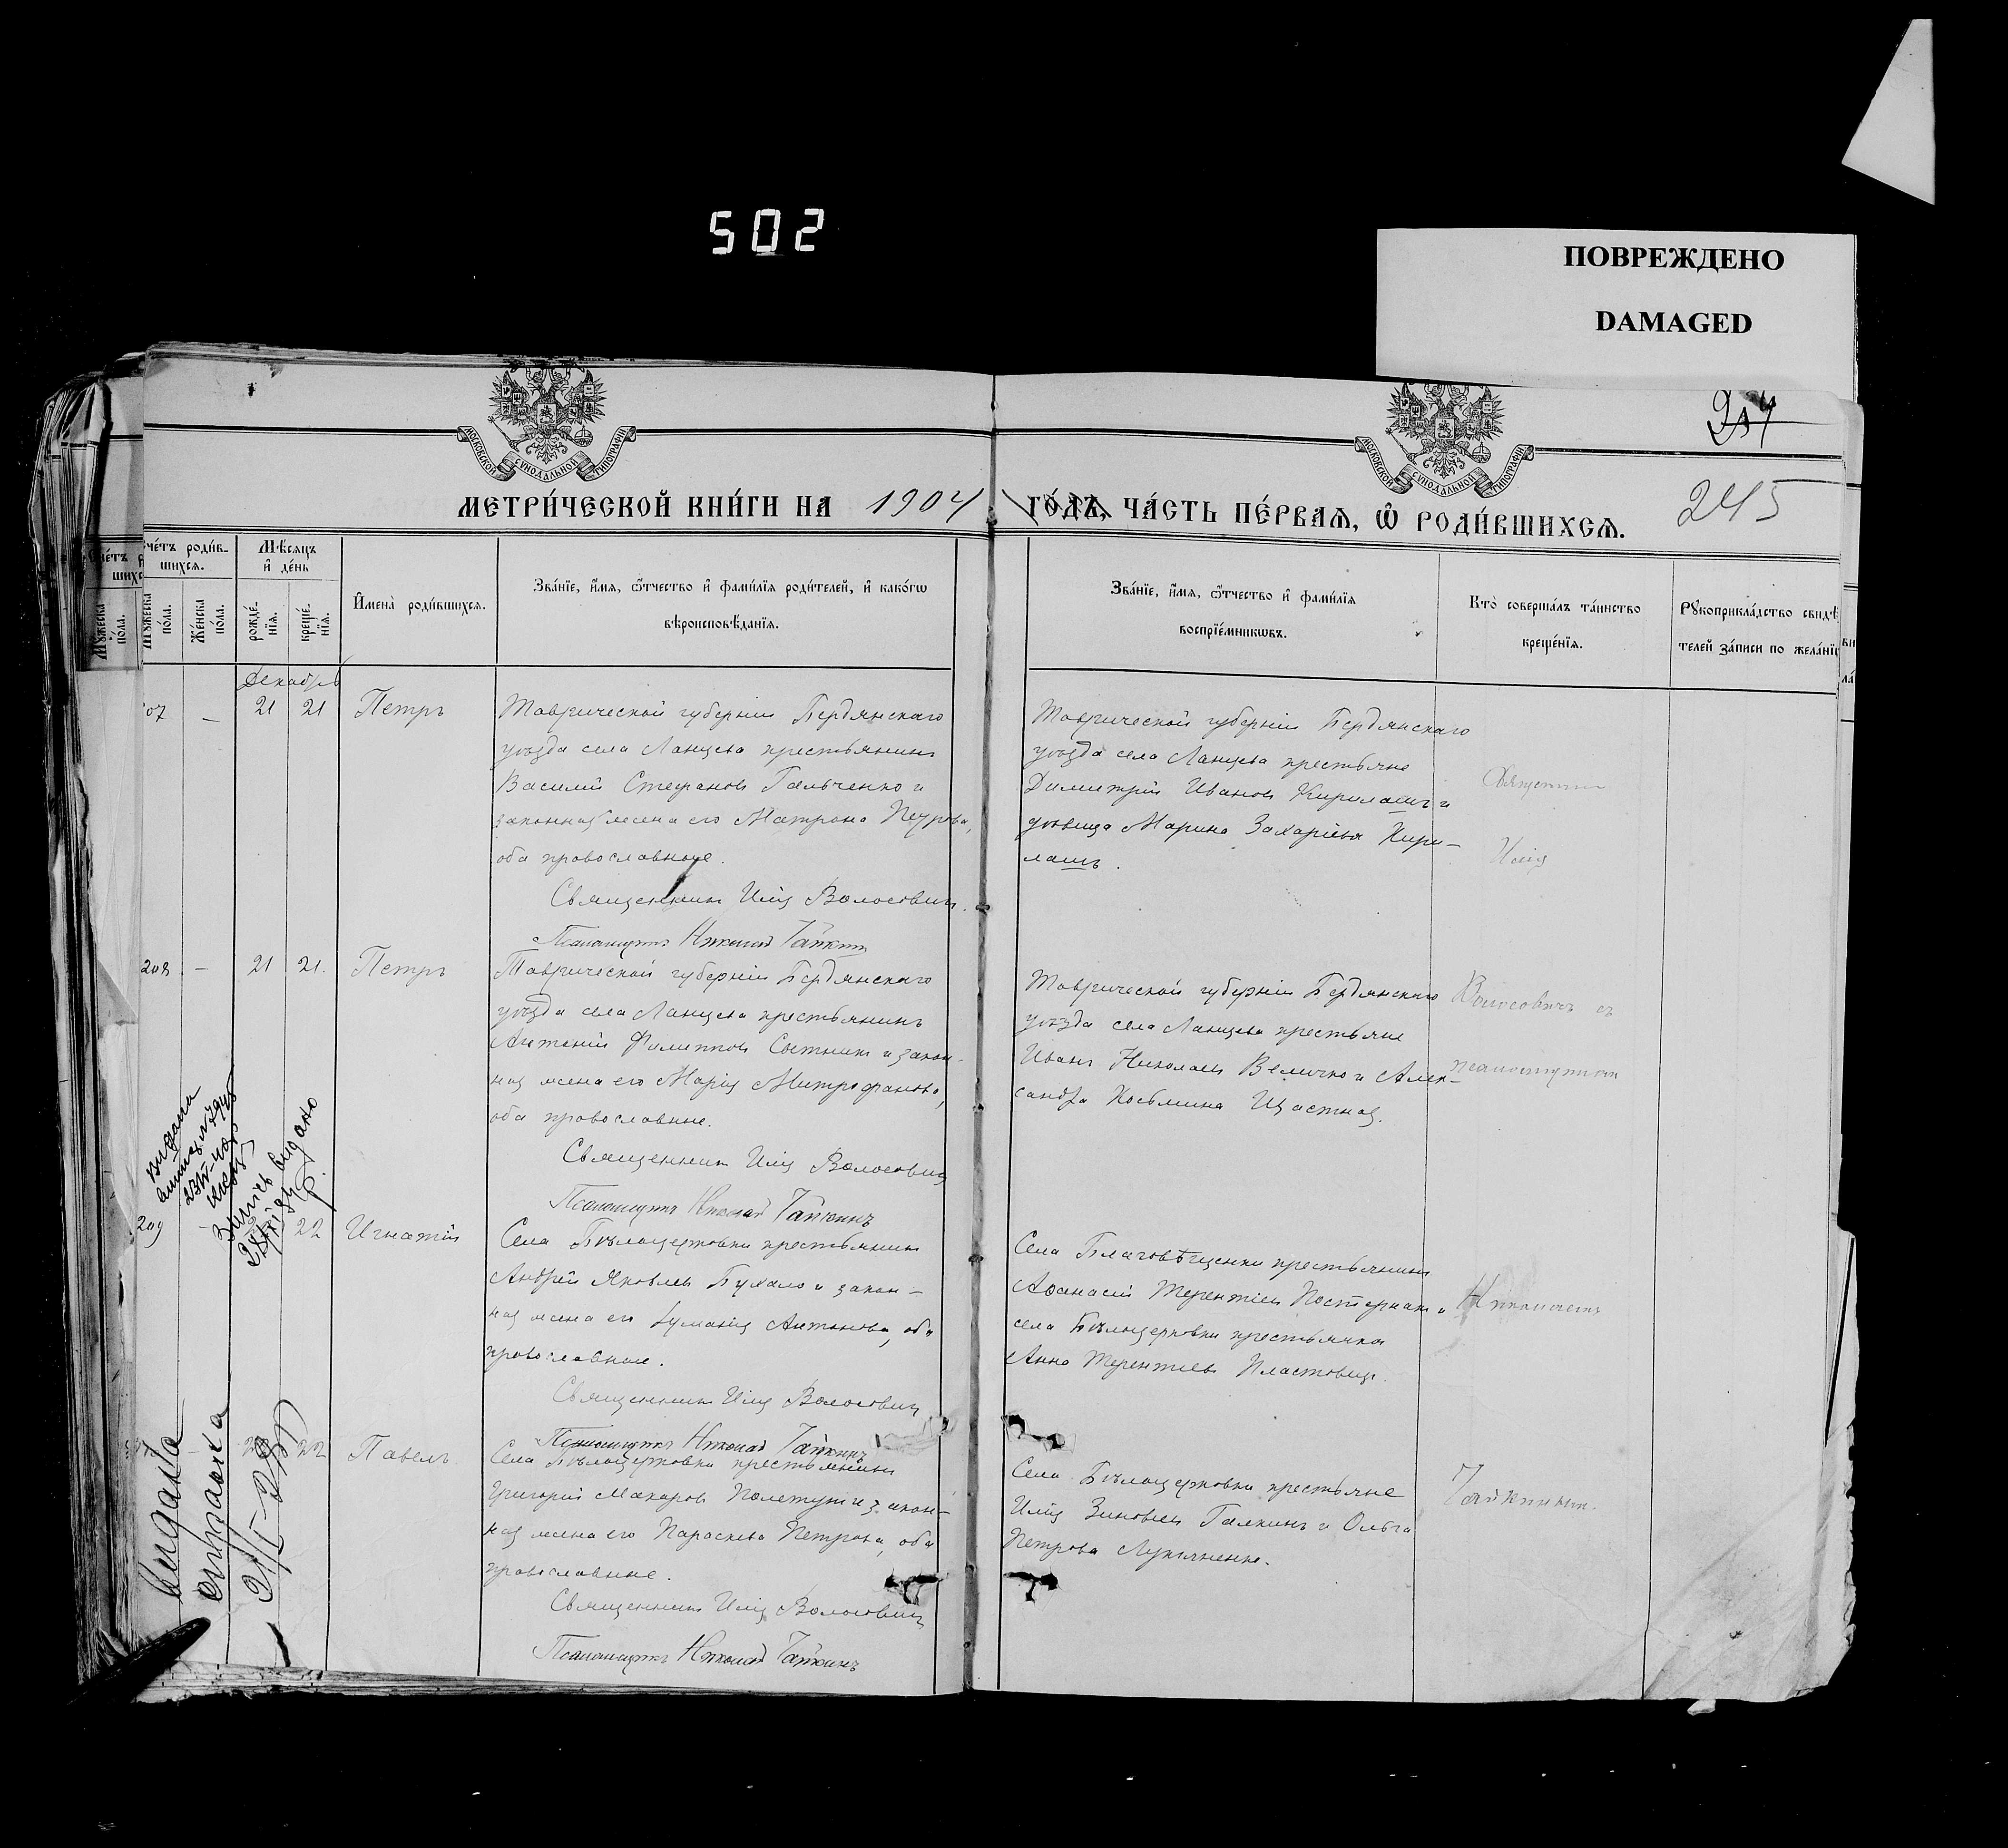 502
ПОВРЕЖДЕНО
DAMAGED
МОСКОВСКОЙ СѴНОДАЛЬНОЙ ТИПОГРАФІИ
МОСКОВСКОЙ СѴНОДАЛЬНОЙ ТИПОГРАФІИ
245
МЕТРИ́ЧЕСКОЙ КНИ́ГИ НА 1904 ГО́ДЪ, ЧА́СТЬ ПЕ́РВАѦ, Ѿ РОДИ́ВШИХСѦ.
Счéтъ роди́в-
шихсѧ.
Мꙋ́жеска по́ла.
Же́нска по́ла.
Мѣ́сѧцъ и҆ де́нь
рожде́-
нїѧ.
креще́-
нїѧ.
И҆мена̀ роди́вшихсѧ.
Зва́нїе, и҆́мѧ, ѻ҆́тчество и҆ фами́лїѧ роди́телей, и҆ како́гѡ
вѣроисповѣ́данїѧ.
Зва́нїе, и҆́мѧ, ѻ҆́тчество и҆ фами́лїѧ
воспрїе́мникѡвъ.
Кто̀ соверша́лъ та́инство
креще́нїѧ.
Рꙋкоприкла́дство свидѣ́-
телей за́писи по жела́нїю
Декабрь
07 — 21 21 Петръ
Таврической губерніи Бердянскаго
уѣзда села Ланцева крестьянинъ
Василій Стефановъ Гальченко и
законная жена его Матрона Петрова,
оба православные.
Священникъ Илія Волосовичъ
Псаломщикъ Николай Гайкинъ
Таврической губерніи Бердянскаго
уѣзда села Ланцева крестьяне
Димитрій Ивановъ Кирилашъ и
дѣвица Марина Захаріева Кири-
лашъ.
Священникъ
Илія
208 — 21 21. Петръ
Таврической губерніи Бердянскаго
уѣзда села Ланцева крестьянинъ
Антоній Филипповъ Сытникъ и закон-
ная жена его Марія Митрофанова,
оба православные.
Священникъ Илія Волосовичъ
Псаломщикъ Николай Гайкинъ
Таврической губерніи Бердянскаго
уѣзда села Ланцева крестьяне
Иванъ Николаевъ Величко и Алек-
сандра Косьмина Щастная.
Волосовичъ съ
псаломщикомъ
видано
209 22 Игнатій
Села Бѣлоцерковки крестьянинъ
Андрей Яковлевъ Бухало и закон-
ная жена его Антонова, оба
православные.
Священникъ Илія Волосовичъ
Псаломщикъ Николай Гайкинъ
Села Благовѣщенки крестьянинъ
Аѳанасій Терентіевъ Постернакъ и
села Бѣлоцерковки крестьянка
Анна Терентіева
Николаемъ
22 Павелъ
Села Бѣлоцерковки крестьянинъ
Григорій Макаровъ и закон-
ная жена его Параскева Петрова, оба
православные.
Священникъ Илія Волосовичъ
Псаломщикъ Николай Гайкинъ
Села Бѣлоцерковки крестьяне
Илія Зиновіевъ Галкинъ и Ольга
Петрова Лукьяненко.
Гайкинымъ.